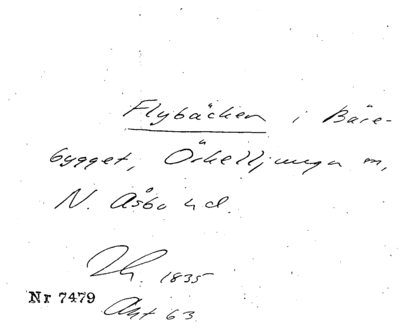 Flybäcken i Båre-
bygget, Örkelljunga m,
N. Åsbo hd.
1835
Nr 7479
Akt 63